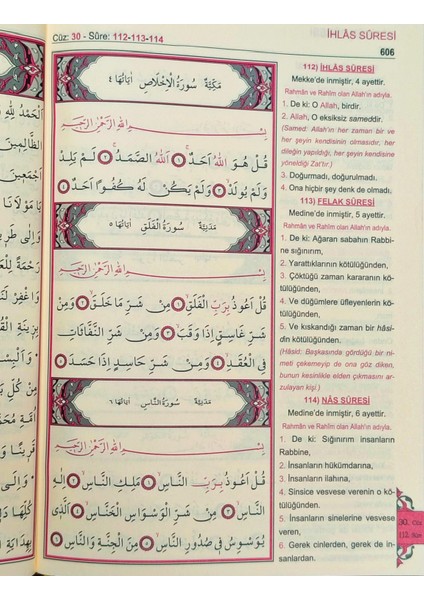 Cüz: 30 - Sûre: 112-113-114
İHLÂS SÛRESİ
606
مَكِّيَّةٌ سُورَةُ الْاِخْلَاصِ اٰيَاتُهَا ٤
بِسْمِ اللّٰهِ الرَّحْمٰنِ الرَّحٖيمِ
قُلْ هُوَ اللّٰهُ اَحَدٌ ﴿١﴾ اَللّٰهُ الصَّمَدُ ﴿٢﴾ لَمْ يَلِدْ
وَلَمْ يُولَدْ ﴿٣﴾ وَلَمْ يَكُنْ لَهُ كُفُوًا اَحَدٌ ﴿٤﴾
مَدَنِيَّةٌ سُورَةُ الْفَلَقِ اٰيَاتُهَا ٥
بِسْمِ اللّٰهِ الرَّحْمٰنِ الرَّحٖيمِ
قُلْ اَعُوذُ بِرَبِّ الْفَلَقِ ﴿١﴾ مِنْ شَرِّ مَا خَلَقَ ﴿٢﴾ وَمِنْ
شَرِّ غَاسِقٍ اِذَا وَقَبَ ﴿٣﴾ وَمِنْ شَرِّ النَّفَّاثَاتِ
فِي الْعُقَدِ ﴿٤﴾ وَمِنْ شَرِّ حَاسِدٍ اِذَا حَسَدَ ﴿٥﴾
مَدَنِيَّةٌ سُورَةُ النَّاسِ اٰيَاتُهَا ٦
بِسْمِ اللّٰهِ الرَّحْمٰنِ الرَّحٖيمِ
قُلْ اَعُوذُ بِرَبِّ النَّاسِ ﴿١﴾ مَلِكِ النَّاسِ ﴿٢﴾ اِلٰهِ
النَّاسِ ﴿٣﴾ مِنْ شَرِّ الْوَسْوَاسِ الْخَنَّاسِ ﴿٤﴾ اَلَّذٖي
يُوَسْوِسُ فٖي صُدُورِ النَّاسِ ﴿٥﴾ مِنَ الْجِنَّةِ وَالنَّاسِ ﴿٦﴾
112) İHLÂS SÛRESİ
Mekke'de inmiştir, 4 ayettir.
Rahmân ve Rahîm olan Allah'ın adıyla.
1. De ki: O Allah, birdir.
2. Allah, O eksiksiz sameddir.
(Samed: Allah'ın her zaman bir ve
her şeyin kendisinin olmasıdır, her
dileğin yapıldığı, her şeyin kendisine
yöneldiği Zat'tır.)
3. Doğurmadı, doğurulmadı.
4. Ona hiçbir şey denk de olmadı.
113) FELAK SÛRESİ
Medine'de inmiştir, 5 ayettir.
Rahmân ve Rahîm olan Allah'ın adıyla.
1. De ki: Ağaran sabahın Rabbi-
ne sığınırım,
2. Yarattıklarının kötülüğünden,
3. Çöktüğü zaman karanın kö-
tülüğünden,
4. Ve düğümlere üfleyenlerin kö-
tülüğünden,
5. Ve kıskandığı zaman bir hâsi-
din kötülüğünden.
(Hâsid: Başkasında gördüğü bir ni-
meti çekemeyip de ona göz diken,
bunun kesinlikle elden çıkmasını ar-
zulayan kişi.)
114) NÂS SÛRESİ
Medine'de inmiştir, 6 ayettir.
Rahmân ve Rahîm olan Allah'ın adıyla.
1. De ki: Sığınırım insanların
Rabbine,
2. İnsanların hükümdarına,
3. İnsanların ilahına,
4. Sinsice vesvese verenin o kö-
tülüğünden.
5. İnsanların sinelerine vesvese
veren,
6. Gerek cinlerden, gerek de in-
sanlardan.
30. Cüz
112. Sûre